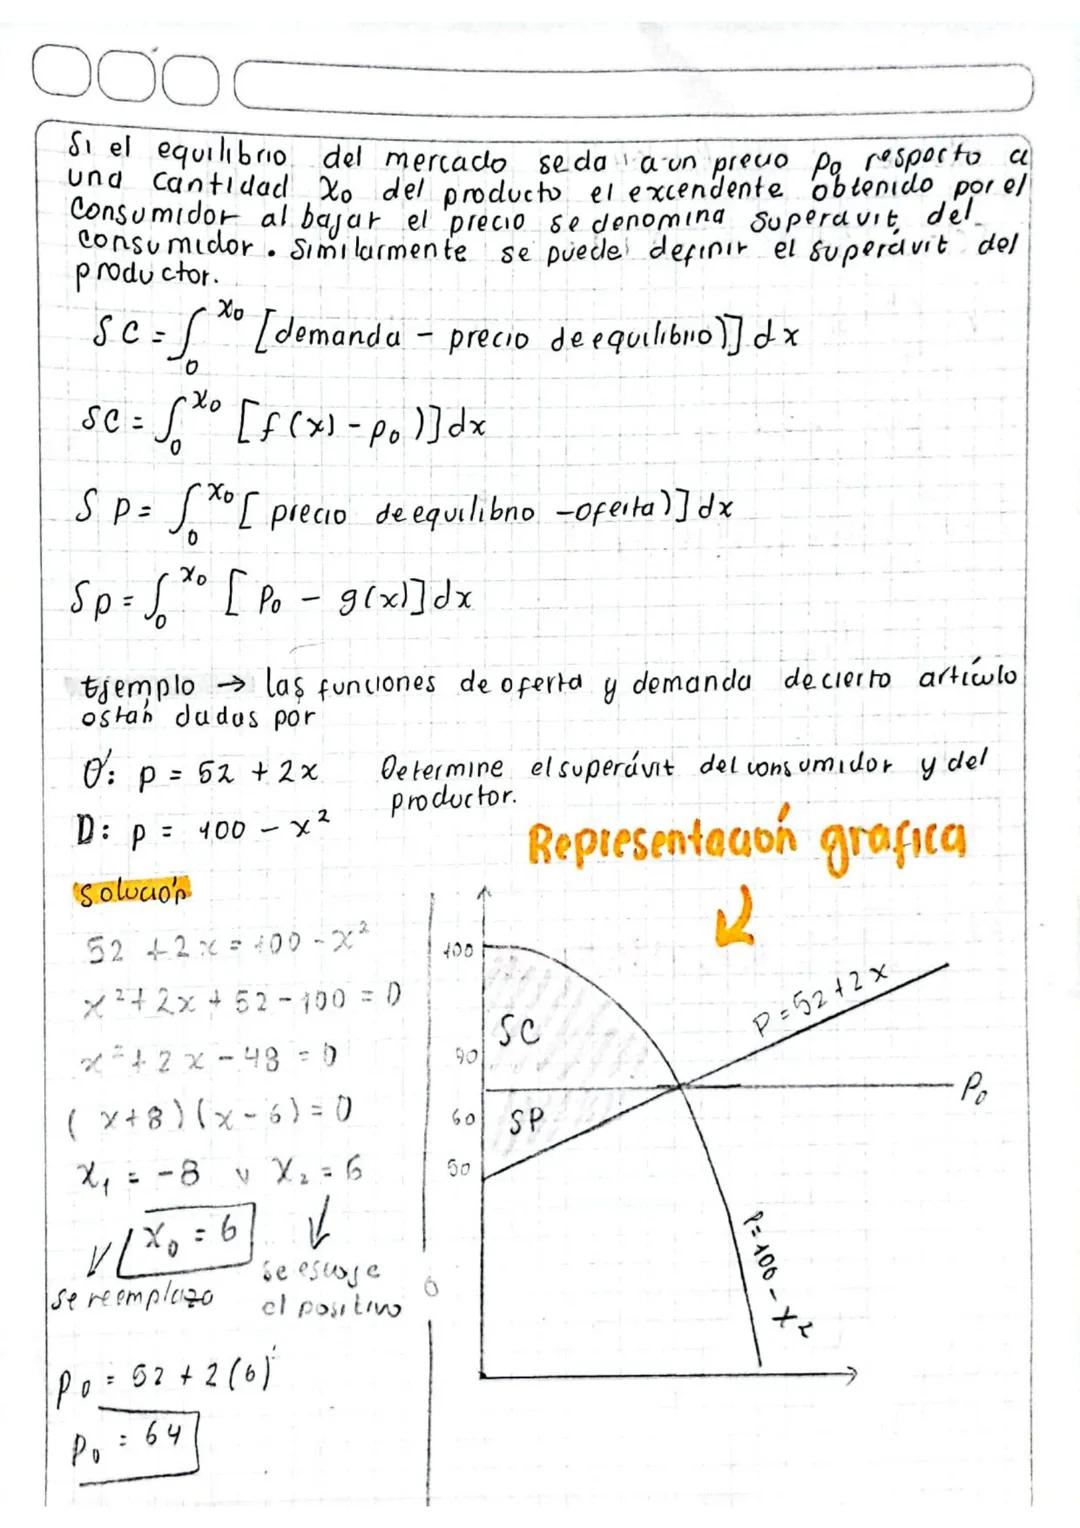 Si el equilibrio del mercado se da a un precio p₀ respecto a
una cantidad x₀ del producto el excendente obtenido por el
consumidor al bajar el precio se denomina superávit del
consumidor. Similarmente se puede definir el superávit del
productor.
SC = ∫₀^x₀ [demanda - precio de equilibrio)] dx
SC = ∫₀^x₀ [f(x) - p₀)] dx
SP = ∫₀^x₀ [precio de equilibrio - oferta)] dx
Sp = ∫₀^x₀ [P₀ - g(x)] dx
Ejemplo → las funciones de oferta y demanda de cierto artículo
estan dadas por
O: p = 52 + 2x Determine el superávit del consumidor y del
productor.
D: p = 100 - x²
Representación grafica
Solución
52 + 2x = 100 - x²
x² + 2x + 52 - 100 = 0
x² + 2x - 48 = 0
(x+8)(x-6) = 0
x₁ = -8 v x₂ = 6
x₀ = 6
se escoje
el positivo
se reemplazo
p₀ = 52 + 2(6)
P₀ = 64
100
90
60
50
0
SC
SP
P = 52 + 2x
P₀
P = 100 - x²